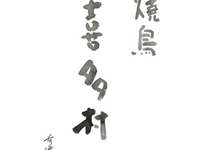 焼鳥
喜多村